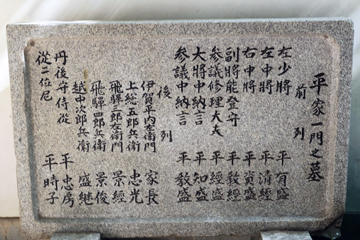 平家一門之墓
前列
左少將 平有盛
左中將 平清經
右中將 平資盛
副將能登守 平教經
參議修理大夫 平經盛
大將中納言 平知盛
參議中納言 平教盛
後列
伊賀平内左衛門 家長
上總五郎兵衛 忠光
飛驒三郎左衛門 景經
飛驒四郎兵衛 景俊
越中次郎兵衛 盛継
丹後守侍從 平忠房
從二位尼 平時子